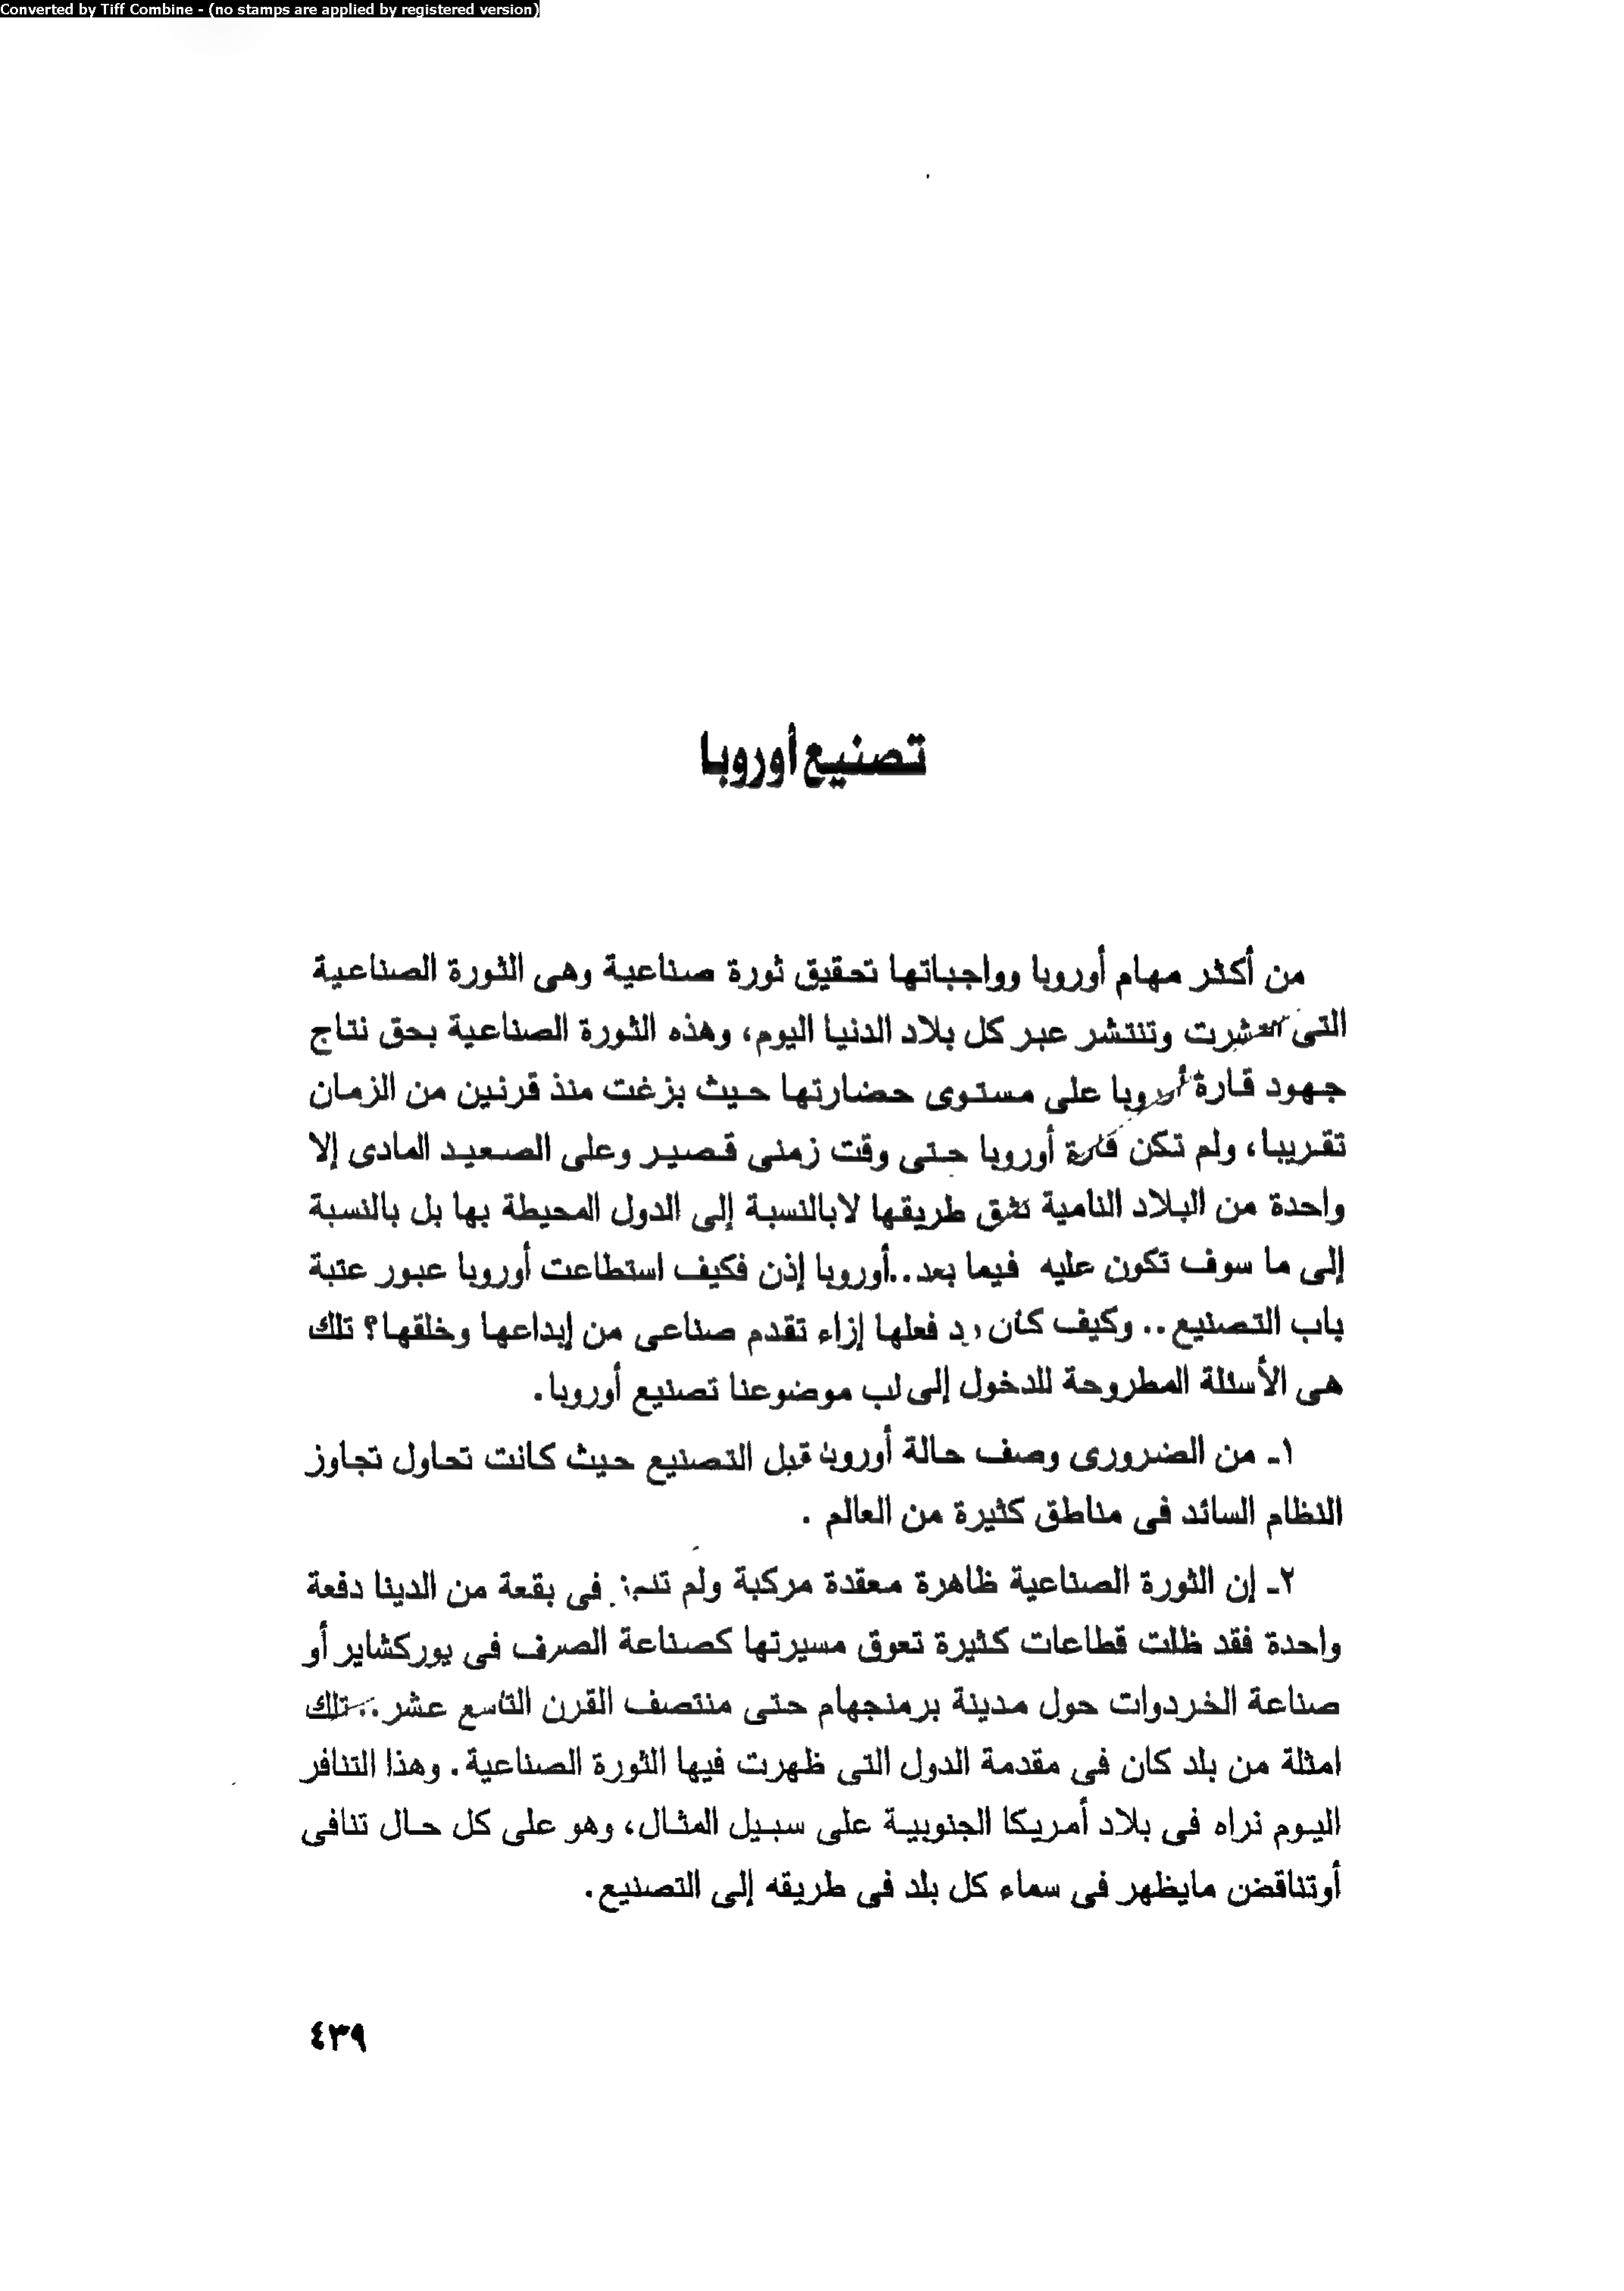 Converted by Tiff Combine - (no stamps are applied by registered version)
تصنيع أوروبا
من أكثر مهام أوروبا وواجباتها تحقيق ثورة صناعية وهى الثورة الصناعية
التى انتشرت وتنتشر عبر كل بلاد الدنيا اليوم، وهذه الثورة الصناعية بحق نتاج
جهود قارة أوروبا على مستوى حضارتها حيث بزغت منذ قرنين من الزمان
تقريبا، ولم تكن قارة أوروبا حتى وقت زمنى قصير وعلى الصعيد المادى إلا
واحدة من البلاد النامية تشق طريقها لابالنسبة إلى الدول المحيطة بها بل بالنسبة
إلى ما سوف تكون عليه فيما بعد..أوروبا إذن فكيف استطاعت أوروبا عبور عتبة
باب التصنيع.. وكيف كان رد فعلها إزاء تقدم صناعى من إبداعها وخلقها؟ تلك
هى الأسئلة المطروحة للدخول إلى لب موضوعنا تصنيع أوروبا.
١ـ من الضرورى وصف حالة أوروبا قبل التصنيع حيث كانت تحاول تجاوز
النظام السائد فى مناطق كثيرة من العالم .
٢ـ إن الثورة الصناعية ظاهرة معقدة مركبة ولم فى بقعة من الدينا دفعة
واحدة فقد ظلت قطاعات كثيرة تعوق مسيرتها كصناعة الصرف فى يوركشاير أو
صناعة الخردوات حول مدينة برمنجهام حتى منتصف القرن التاسع عشر.. تلك
امثلة من بلد كان فى مقدمة الدول التى ظهرت فيها الثورة الصناعية. وهذا التنافر
اليوم نراه فى بلاد أمريكا الجنوبية على سبيل المثال، وهو على كل حال تنافى
أوتناقض مايظهر فى سماء كل بلد فى طريقه إلى التصنيع.
٤٣٩